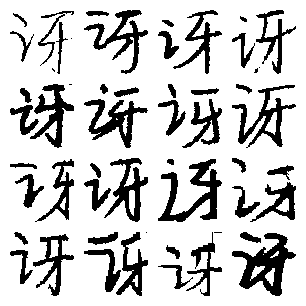 讶讶讶讶
讶讶讶讶
讶讶讶讶
讶讶讶讶